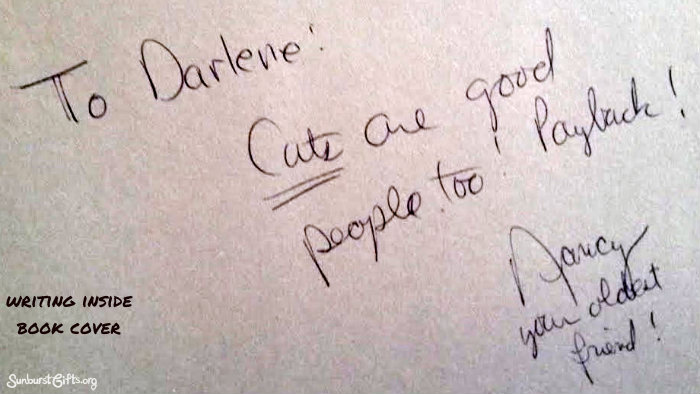 To Darlene:
Cats are good
people too! Payback!
Nancy
your oldest
friend!
WRITING INSIDE
BOOK COVER
SunburstGifts.org